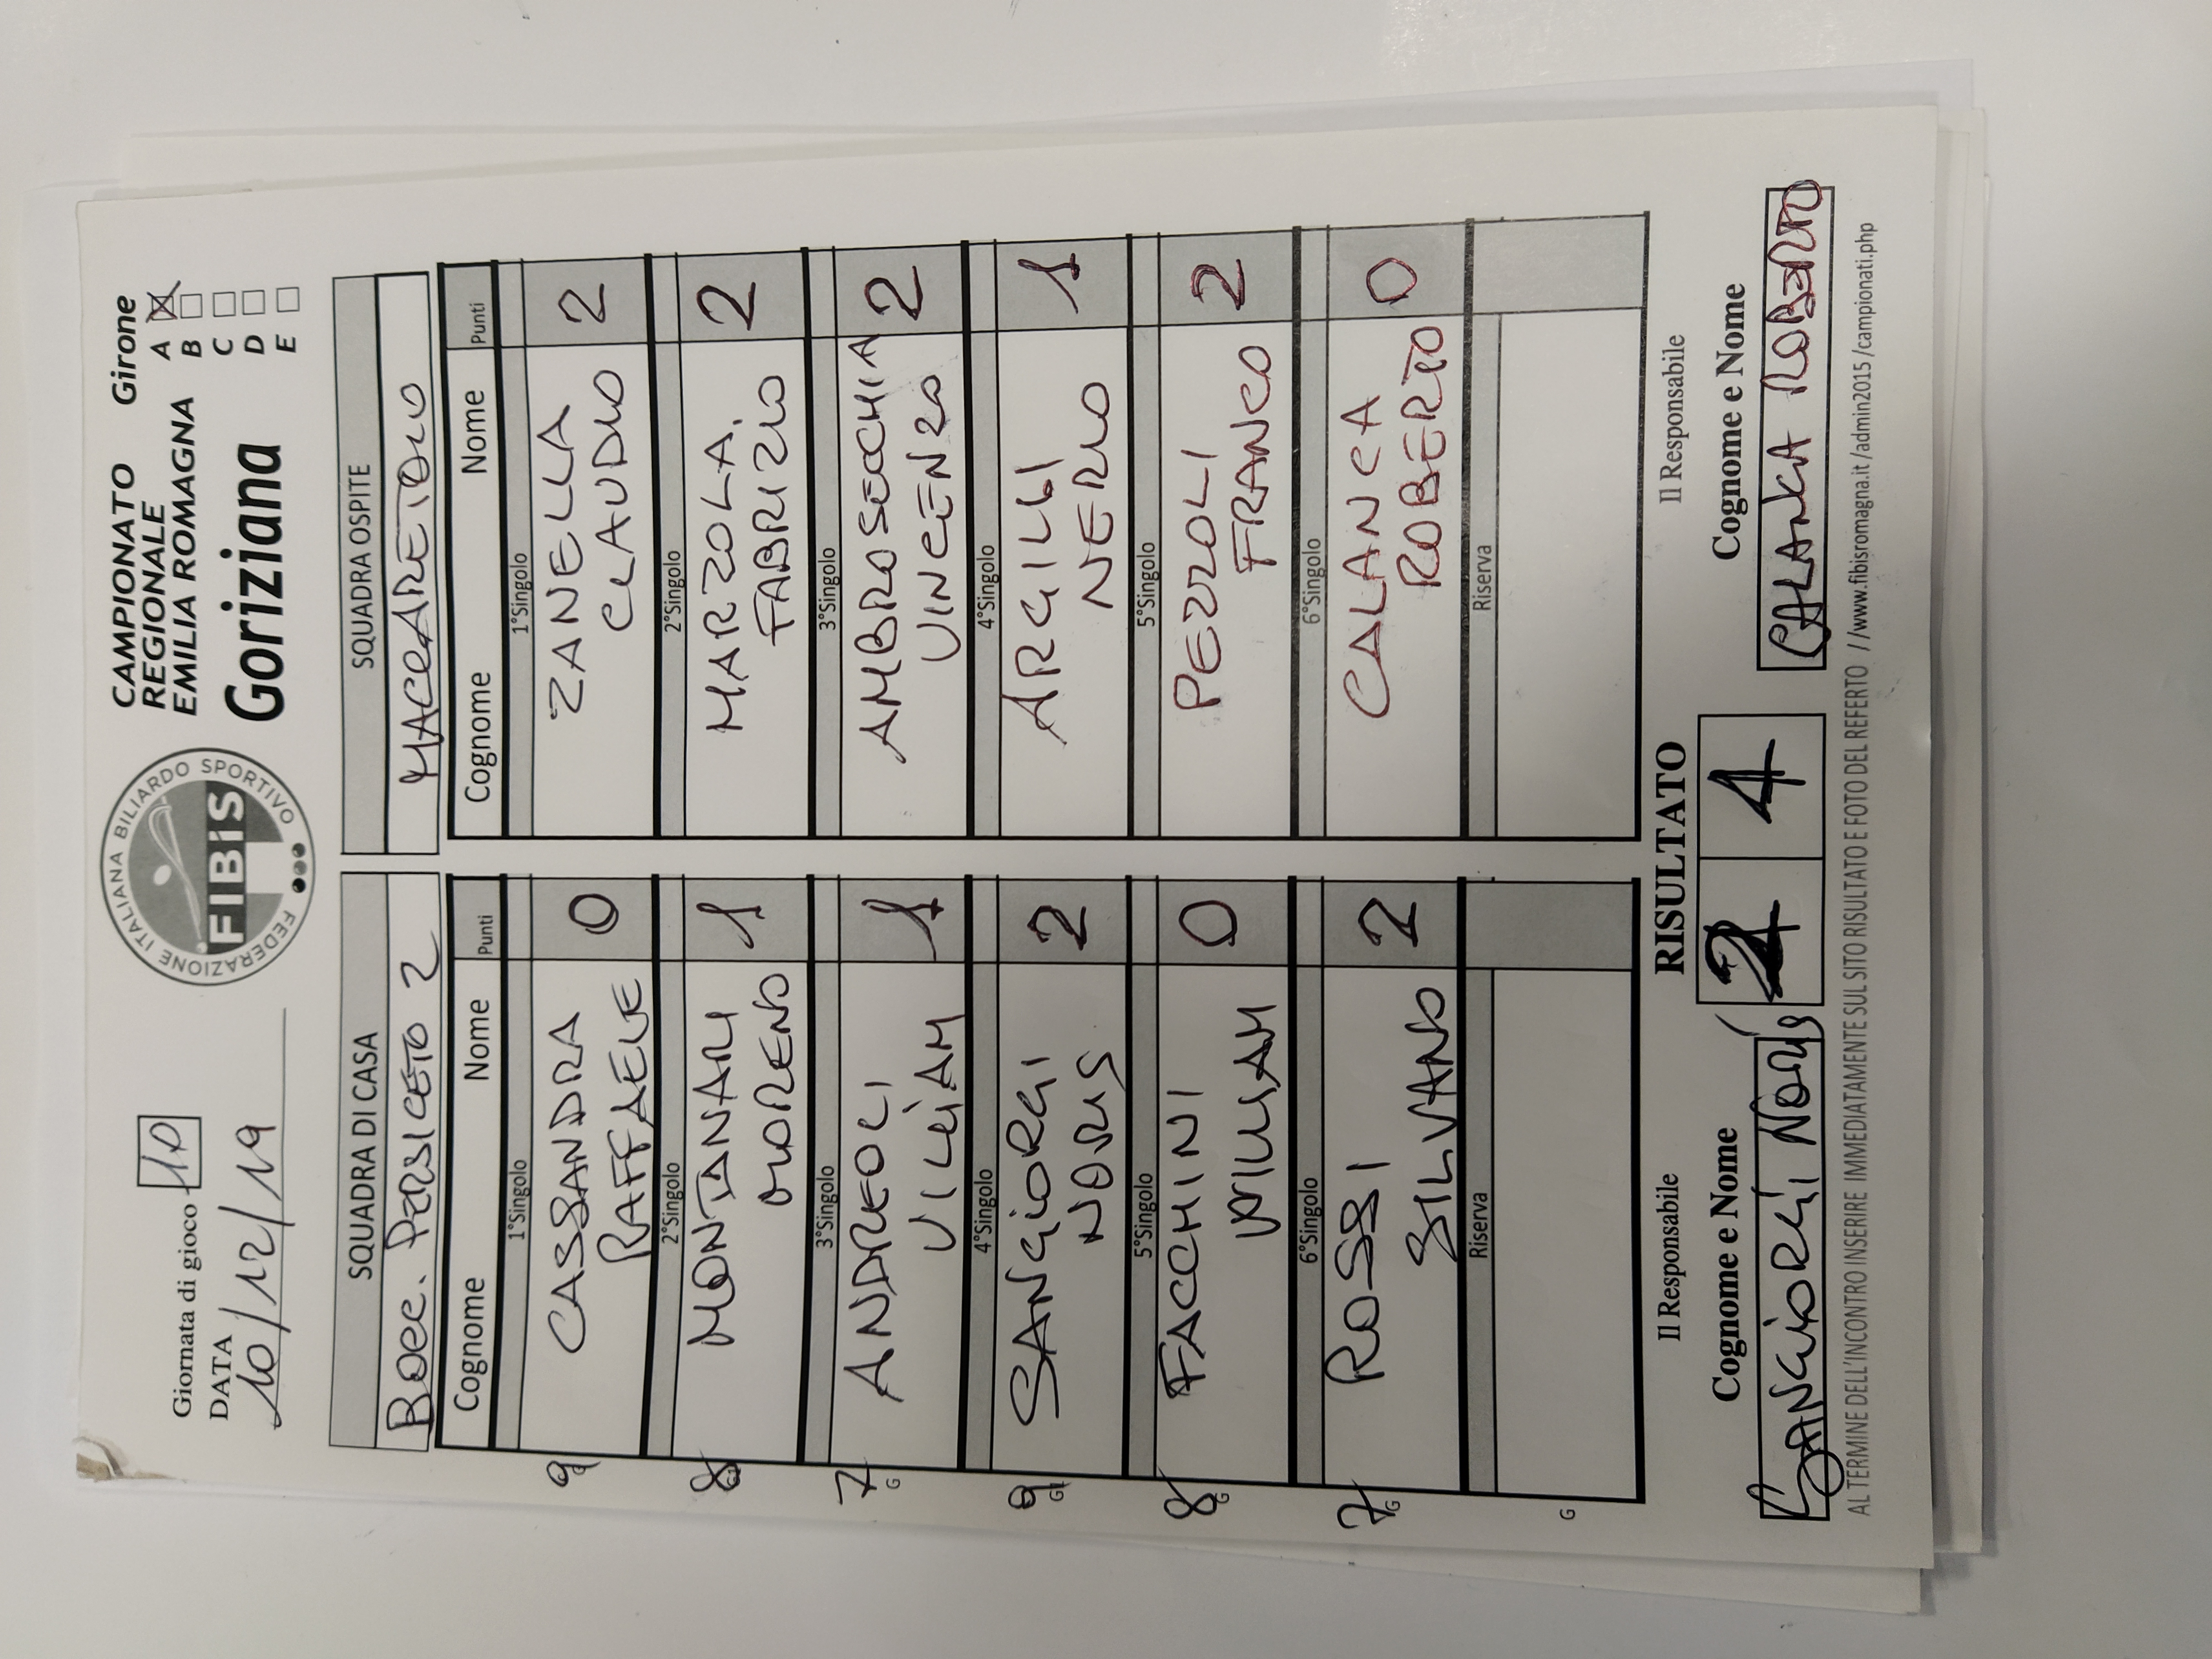 Giornata di gioco 10
DATA
10/12/19
FEDERAZIONE ITALIANA BILIARDO SPORTIVO
FIBIS
CAMPIONATO
REGIONALE
EMILIA ROMAGNA
Goriziana
Girone
A X
B
C
D
E
SQUADRA DI CASA
Bocc. PERSICETO 2
Cognome Nome Punti
1°Singolo
9 CASSANDRA
RAFFAELE 0
2°Singolo
8 MONTANARI
MORENO 1
3°Singolo
7 G ANDREOLI
VILLIAM 1
4°Singolo
9 SANGIORGI
NORIS 2
5°Singolo
8 G FACCHINI
WILLIAM 0
6°Singolo
7 G ROSSI
SILVANO 2
Riserva
G
SQUADRA OSPITE
MACCARETOLO
Cognome Nome Punti
1°Singolo
ZANELLA
CLAUDIO 2
2°Singolo
MARZOLA
FABRIZIO 2
3°Singolo
AMBROSECCHIA
VINCENZO 2
4°Singolo
ARGILLI
NERIO 1
5°Singolo
PEZZOLI
FRANCO 2
6°Singolo
CALANCA
ROBERTO 0
Riserva
Il Responsabile
Cognome e Nome
SANGIORGI NORIS
RISULTATO
2 4
Il Responsabile
Cognome e Nome
CALANCA ROBERTO
AL TERMINE DELL'INCONTRO INSERIRE IMMEDIATAMENTE SUL SITO RISULTATO E FOTO DEL REFERTO //www.fibisromagna.it/admin2015/campionati.php